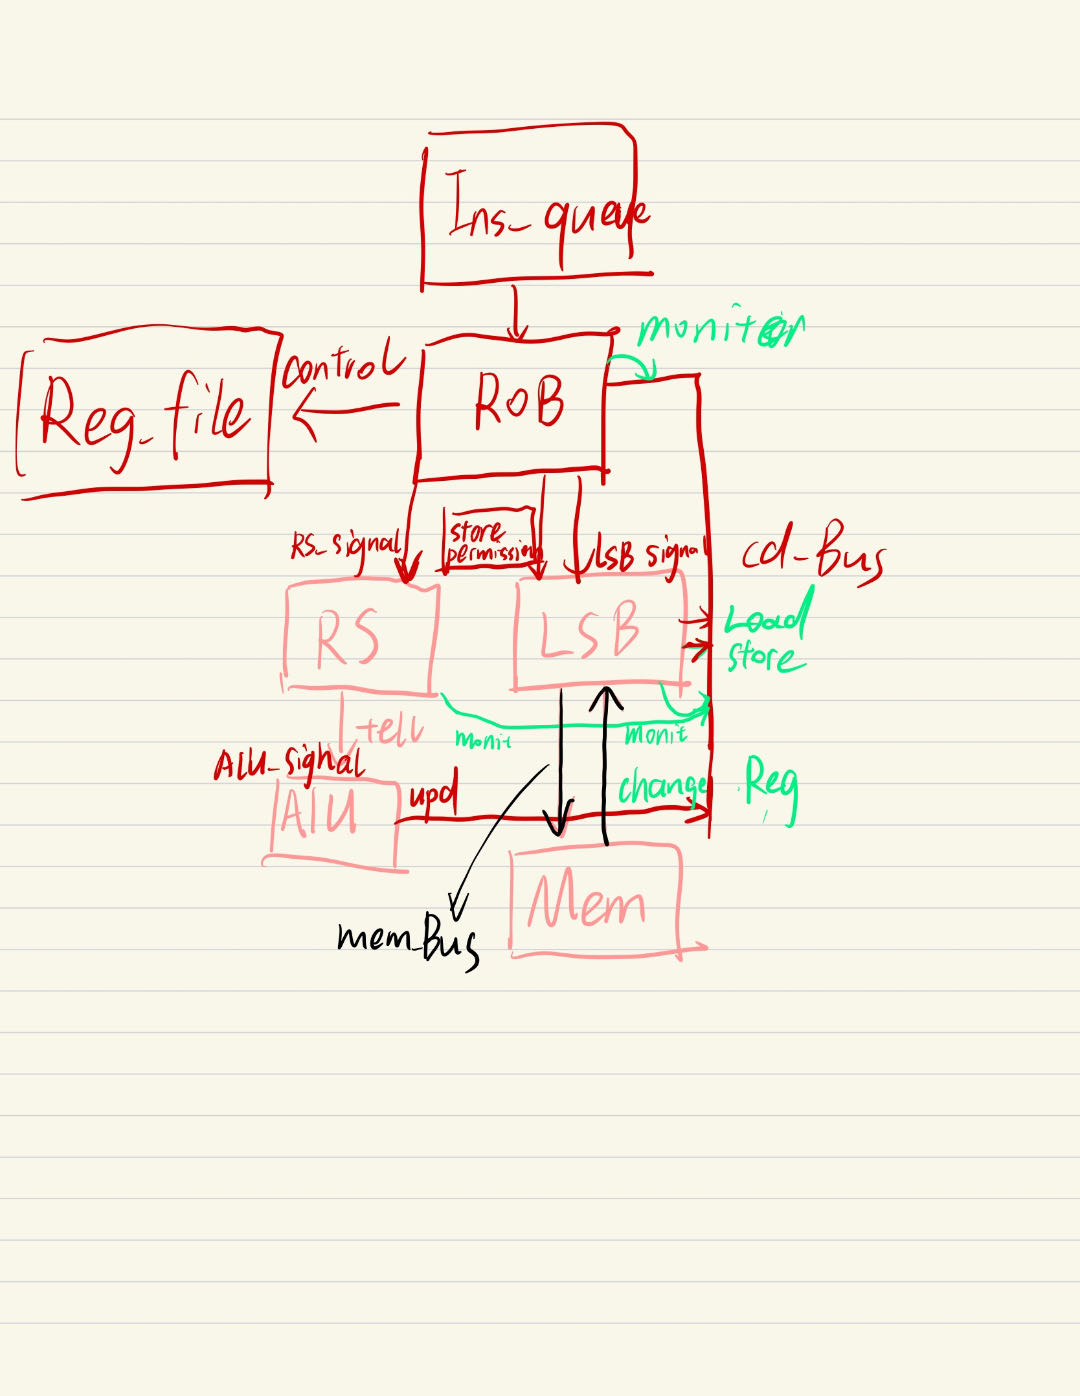 Ins_queue
monitor
control
Reg_file
ROB
RS_signal
store
permission
LSB signal
cd_Bus
RS
LSB
Load
store
tell
monit
monit
ALU_signal
upd
change Reg
ALU
Mem
mem_Bus